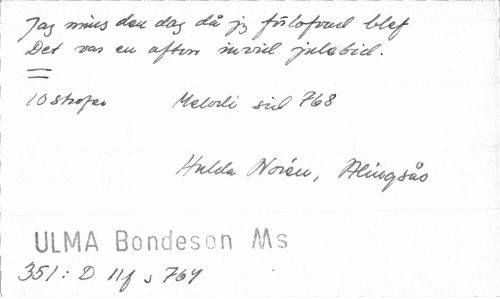 Jag mins den dag då jg förlofvad blef
Det var en afton invid juletid.
10 strofer Melodi sid 768
Hulda Norén, Alingsås
ULMA Bondeson Ms
351: D 11f s 764